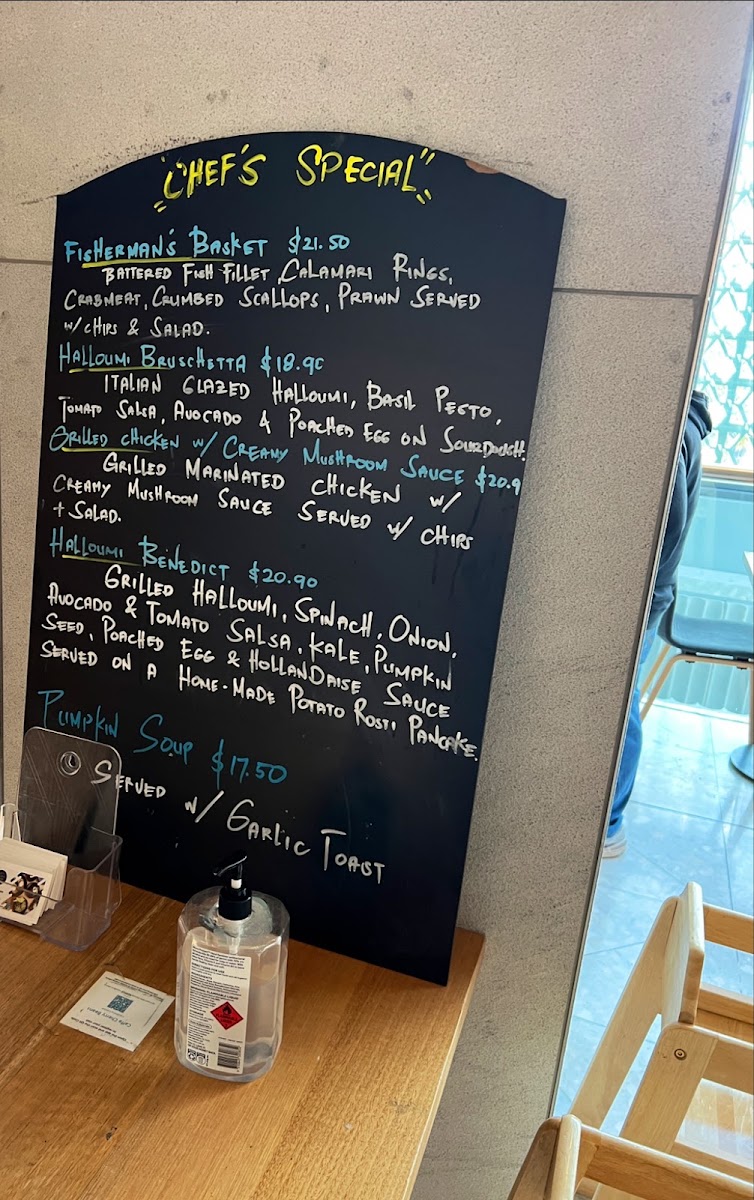 "CHEF'S SPECIAL"
FISHERMAN'S BASKET $21.50
BATTERED FISH FILLET, CALAMARI RINGS,
CRABMEAT, CRUMBED SCALLOPS, PRAWN SERVED
W/ CHIPS & SALAD.
HALLOUMI BRUSCHETTA $18.90
ITALIAN GLAZED HALLOUMI, BASIL PESTO,
TOMATO SALSA, AVOCADO & POACHED EGG ON SOURDOUGH.
GRILLED CHICKEN W/ CREAMY MUSHROOM SAUCE $20.9
GRILLED MARINATED CHICKEN W/
CREAMY MUSHROOM SAUCE SERVED W/ CHIPS
+ SALAD.
HALLOUMI BENEDICT $20.90
GRILLED HALLOUMI, SPINACH, ONION,
AVOCADO & TOMATO SALSA, KALE, PUMPKIN
SEED, POACHED EGG & HOLLANDAISE SAUCE
SERVED ON A HOME-MADE POTATO ROSTI PANCAKE.
PUMPKIN SOUP $17.50
SERVED W/ GARLIC TOAST